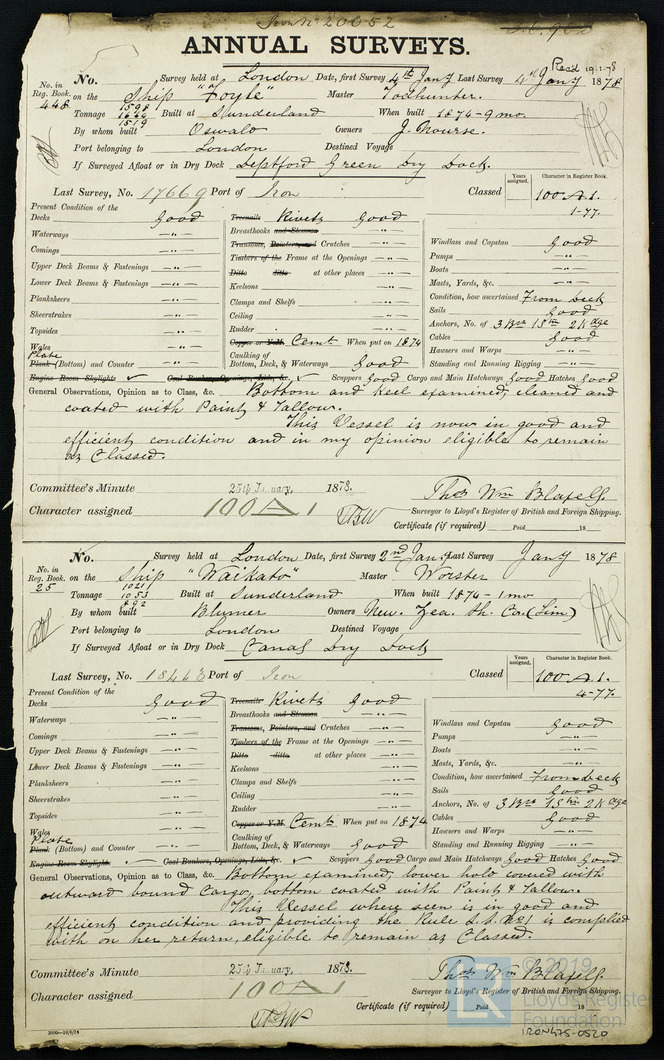 Iron No 20052
ANNUAL SURVEYS.
Recd 19.1.78
No. Survey held at London Date, first Survey 4th Jany Last Survey 4th Jany 1878
No. in Reg. Book. 448 on the Ship "Foyle" Master Todhunter.
Tonnage 1598 1644 1519 Built at Sunderland When built 1874-9 mo.
By whom built Oswald Owners J. Nourse.
Port belonging to London Destined Voyage
If Surveyed Afloat or in Dry Dock Deptford Green Dry Dock.
Years assigned. Character in Register Book.
Last Survey, No. 17669 Port of Iron Classed 100 A.1.
1-77.
Present Condition of the
Decks Good Treenails Rivets Good
Waterways —"— Breasthooks and Stemson —"—
Comings —"— Transoms, Pointers, and Crutches —"— Windlass and Capstan Good
Upper Deck Beams & Fastenings —"— Timbers of the Frame at the Openings —"— Pumps —"—
Lower Deck Beams & Fastenings —"— Ditto ditto at other places —"— Boats —"—
Planksheers —"— Keelsons —"— Masts, Yards, &c. —"—
Sheerstrakes —"— Clamps and Shelfs —"— Condition, how ascertained From Deck
Topsides —"— Ceiling —"— Sails Good
Wales —"— Rudder —"— Anchors, No. of 3 Brs 1 Stm 2 Kdge
Copper or Y.M. Cemt When put on 1874 Cables Good
Plate Plank (Bottom) and Counter —"— Caulking of Bottom, Deck, & Waterways Good Hawsers and Warps —"—
Standing and Running Rigging —"—
Engine Room Skylights ✓ Coal Bunkers, Openings, Lids, &c. ✓ Scuppers Good Cargo and Main Hatchways Good Hatches Good
General Observations, Opinion as to Class, &c. Bottom and Keel examined, cleaned and
coated with Paint & Tallow.
This Vessel is now in good and
efficient condition and in my opinion eligible to remain
as Classed.
Committee's Minute 25th January, 1878. Thos Wm Blaxell
Character assigned 100A1 Surveyor to Lloyd's Register of British and Foreign Shipping.
Certificate (if required) Paid 18
No. Survey held at London Date, first Survey 2nd Jany Last Survey Jany 1878
No. in Reg. Book. 25 on the Ship "Waikato" Master Worster
Tonnage 1021 1053 892 Built at Sunderland When built 1874-1mo
By whom built Blumer Owners New. Zea. Sh. Co. (Lim)
Port belonging to London Destined Voyage
If Surveyed Afloat or in Dry Dock Canal Dry Dock
Years assigned. Character in Register Book.
Last Survey, No. Port of Iron Classed 100 A.1.
4-77.
Present Condition of the
Decks Good Treenails Rivets Good
Waterways —"— Breasthooks and Stemson —"—
Comings —"— Transoms, Pointers, and Crutches —"— Windlass and Capstan Good
Upper Deck Beams & Fastenings —"— Timbers of the Frame at the Openings —"— Pumps —"—
Lower Deck Beams & Fastenings —"— Ditto ditto at other places —"— Boats —"—
Planksheers —"— Keelsons —"— Masts, Yards, &c. —"—
Sheerstrakes —"— Clamps and Shelfs —"— Condition, how ascertained From Deck
Topsides —"— Ceiling —"— Sails Good
Wales —"— Rudder —"— Anchors, No. of 3 Brs 1 Stm 2 Kdge
Copper or Y.M. Cemt When put on 1874 Cables Good
Plate Plank (Bottom) and Counter —"— Caulking of Bottom, Deck, & Waterways Good Hawsers and Warps —"—
Standing and Running Rigging —"—
Engine Room Skylights Coal Bunkers, Openings, Lids, &c. ✓ Scuppers Good Cargo and Main Hatchways Good Hatches Good
General Observations, Opinion as to Class, &c. Bottom examined, lower hold covered with
outward bound Cargo, bottom coated with Paint & Tallow.
This Vessel where seen is in good and
efficient condition and providing the Rule S.S. No1 is complied
with on her return, eligible to remain as Classed.
Committee's Minute 25th January, 1878. Thos Wm Blaxell
Character assigned 100A1 Surveyor to Lloyd's Register of British and Foreign Shipping.
Certificate (if required) Paid 18
© 2019
LR Lloyd's Register Foundation
IRON475-0520